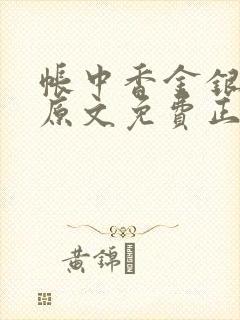 帳中香金銀
原文免費正
黃錦